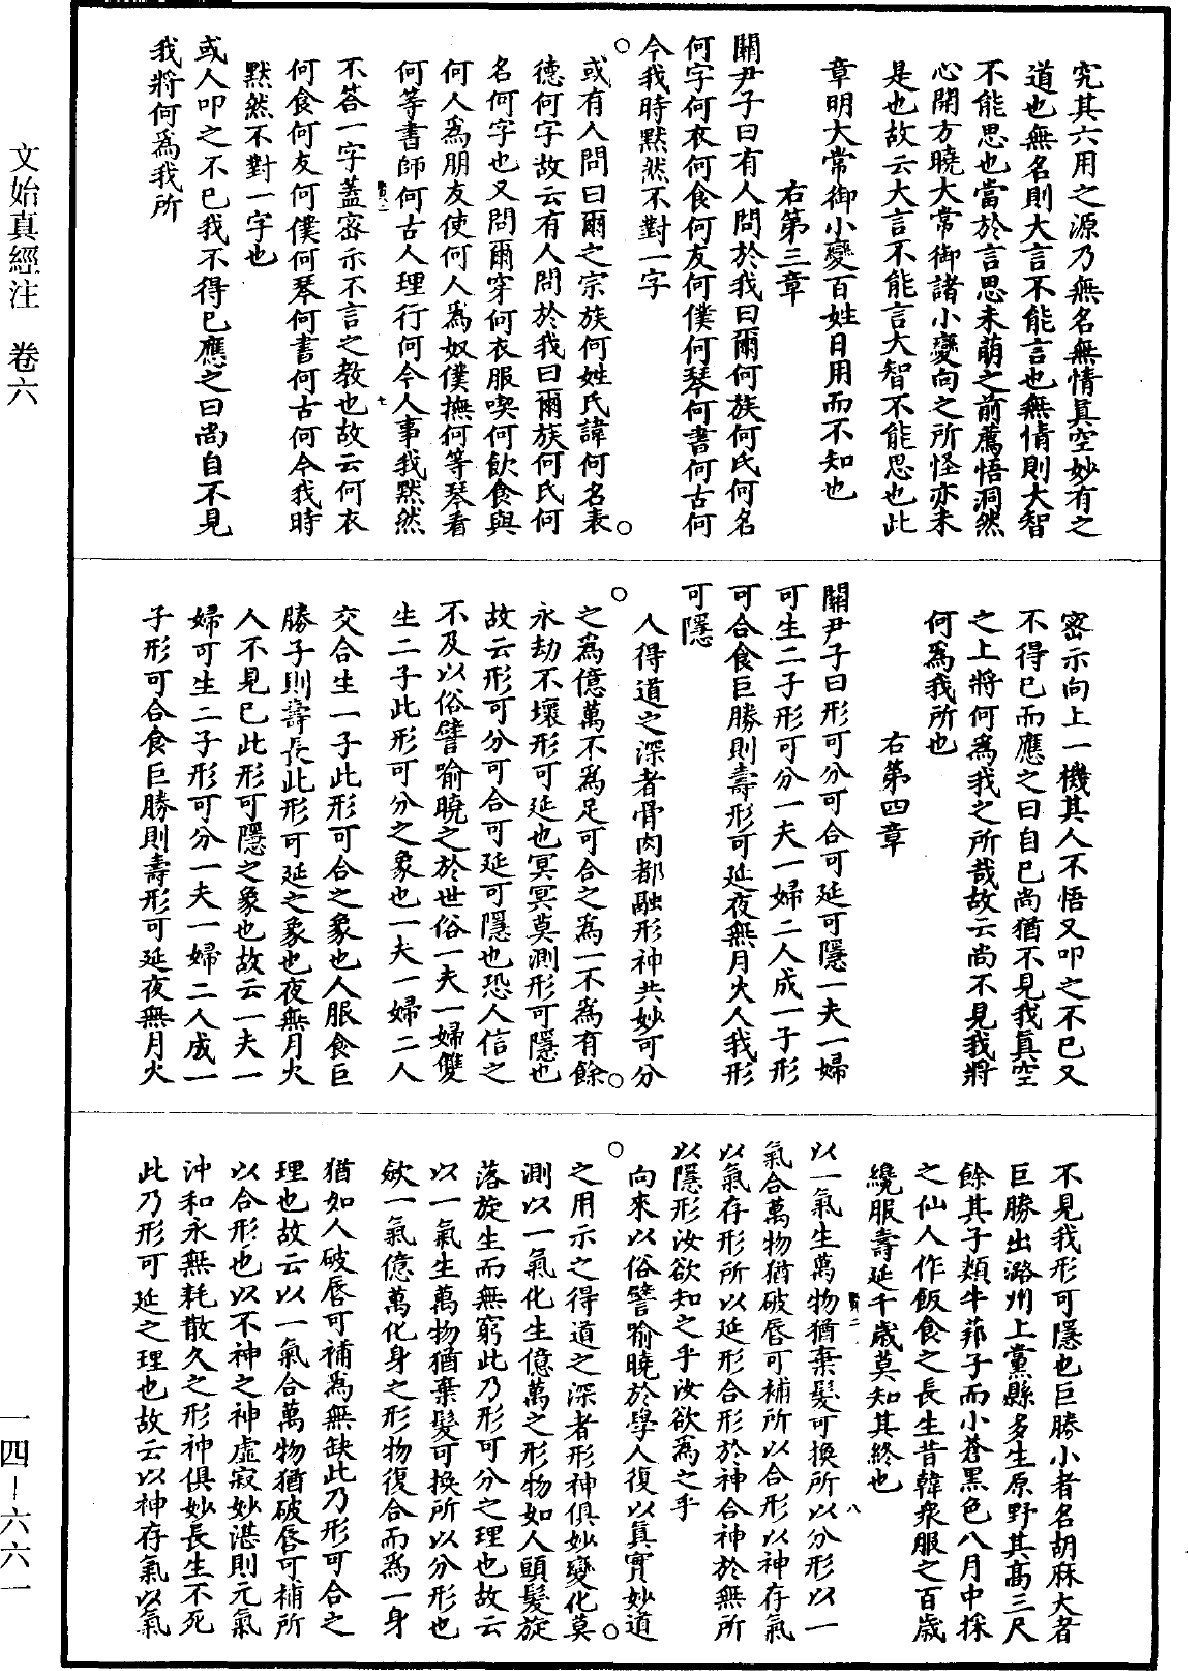 究其六用之源乃無名無情眞空妙有之
道也無名則大言不能言也無情則大智
不能思也當於言思未萌之前薦悟洞然
心開方曉大常御諸小變向之所怪亦未
是也故云大言不能言大智不能思也此
章明大常御小變百姓日用而不知也
右第三章
關尹子曰有人問於我曰爾何族何氏何名
何字何衣何食何友何僕何琴何書何古何
今我時默然不對一字
或有人問曰爾之宗族何姓氏諱何名表
德何字故云有人問於我曰爾族何氏何
名何字也又問爾穿何衣服喫何飲食與
何人爲朋友使何人爲奴僕撫何等琴看
何等書師何古人理行何今人事我默然
不答一字蓋密示不言之教也故云何衣
何食何友何僕何琴何書何古何今我時
默然不對一字也
或人叩之不已我不得已應之曰尚自不見
我將何爲我所
密示向上一機其人不悟又叩之不已又
不得已而應之曰自己尚猶不見我眞空
之上將何爲我之所哉故云尚不見我將
何爲我所也
右第四章
關尹子曰形可分可合可延可隱一夫一婦
可生二子形可分一夫一婦二人成一子形
可合食巨勝則壽形可延夜無月火人我形
可隱
人得道之深者骨肉都融形神共妙可分
之爲億萬不爲足可合之爲一不爲有餘
永劫不壞形可延也冥冥莫測形可隱也
故云形可分可合可延可隱也恐人信之
不及以俗譬喻曉之於世俗一夫一婦雙
生二子此形可分之象也一夫一婦二人
交合生一子此形可合之象也人服食巨
勝子則壽長此形可延之象也夜無月火
人不見已此形可隱之象也故云一夫一
婦可生二子形可分一夫一婦二人成一
子形可合食巨勝則壽形可延夜無月火
不見我形可隱也巨勝小者名胡麻大者
巨勝出潞州上黨縣多生原野其高三尺
餘其子類牛蒡子而小蒼黑色八月中採
之仙人作飯食之長生昔韓衆服之百歲
纔服壽延千歲莫知其終也
以一氣生萬物猶棄髮可換所以分形以一
氣合萬物猶破唇可補所以合形以神存氣
以氣存形所以延形合形於神合神於無所
以隱形汝欲知之乎汝欲爲之乎
向來以俗譬喻曉於學人復以眞實妙道
之用示之得道之深者形神俱妙變化莫
測以一氣化生億萬之形物如人頭髮旋
落旋生而無窮此乃形可分之理也故云
以一氣生萬物猶棄髮可換所以分形也
歛一氣億萬化身之形物復合而爲一身
猶如人破唇可補爲無缺此乃形可合之
理也故云以一氣合萬物猶破唇可補所
以合形也以不神之神虛寂妙湛則元氣
沖和永無耗散久之形神俱妙長生不死
此乃形可延之理也故云以神存氣以氣
文始真經注　卷六
一四—六六一